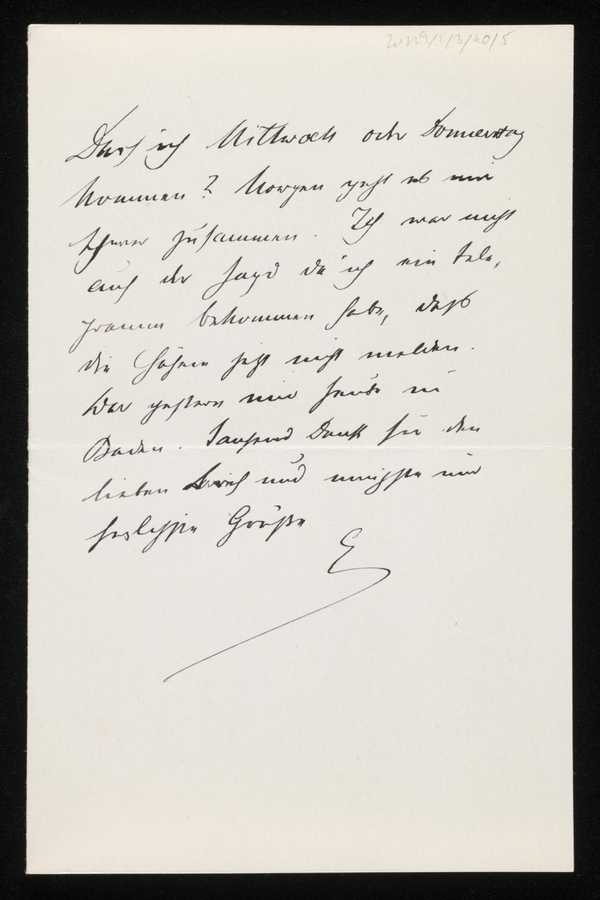 Darf ich Mittwoch oder Donnerstag
kommen? Morgen geht es mir
schwer zusammen. Ich war nicht
auf der Jagd da ich ein Tele,
gramm bekommen habe, daß
die Hähne jetzt nicht melden.
War gestern mit in
Baden. Tausend Dank für den
lieben Brief und innigste und
herzlichste Grüße
E